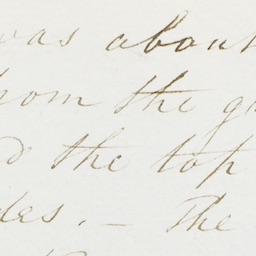 was about
from the
the top
. — The